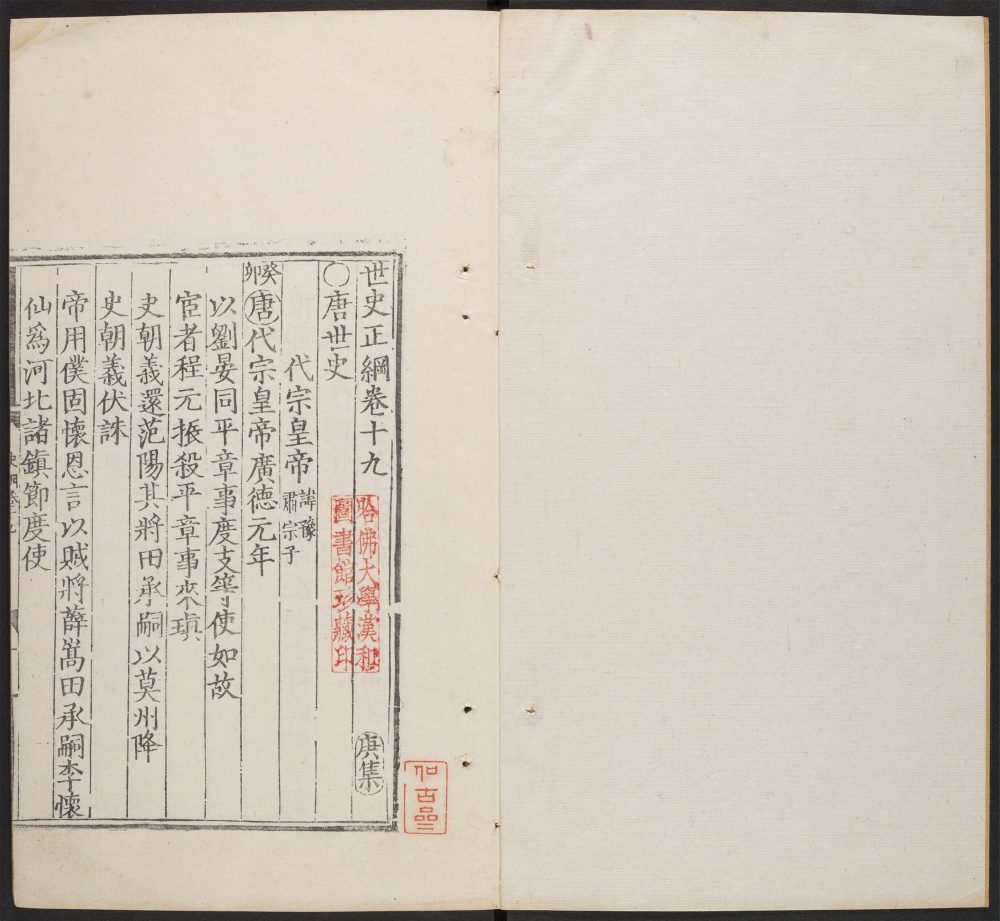 世史正綱卷十九 庚集
○唐世史
代宗皇帝 諱豫 肅宗子
癸卯 唐代宗皇帝廣德元年
以劉晏同平章事度支等使如故
宦者程元振殺平章事來瑱
史朝義還范陽其將田承嗣以莫州降
史朝義伏誅
帝用僕固懷恩言以賊將薛嵩田承嗣李懷
仙爲河北諸鎮節度使
哈佛大學漢和
圖書館珍藏印